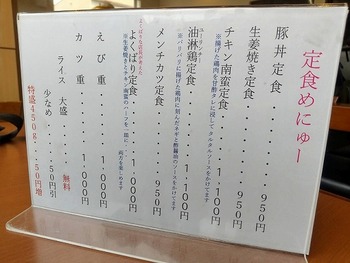 定食めにゅー
豚丼定食・・・・・・・９５０円
生姜焼き定食・・・・・９５０円
チキン南蛮定食・・・１,０００円
※揚げた鶏肉を甘酢タレに浸してタルタルソースをかけてます
ユーリンチー
油淋鶏定食・・・・・１,１００円
※パリパリに揚げた鶏肉に刻んだネギと酢醤油のソースをかけてます
メンチカツ定食・・・・９５０円
よくばり定食・・・・１,１００円
※生姜焼きとチキン南蛮のハーフで、一度に両方を楽しめます
えび重・・・・・・・１,０００円
カツ重・・・・・・・１,０００円
ライス 大盛・・・・・無料
少なめ・・・・５０円引
特盛４５０ｇ・・・５０円増